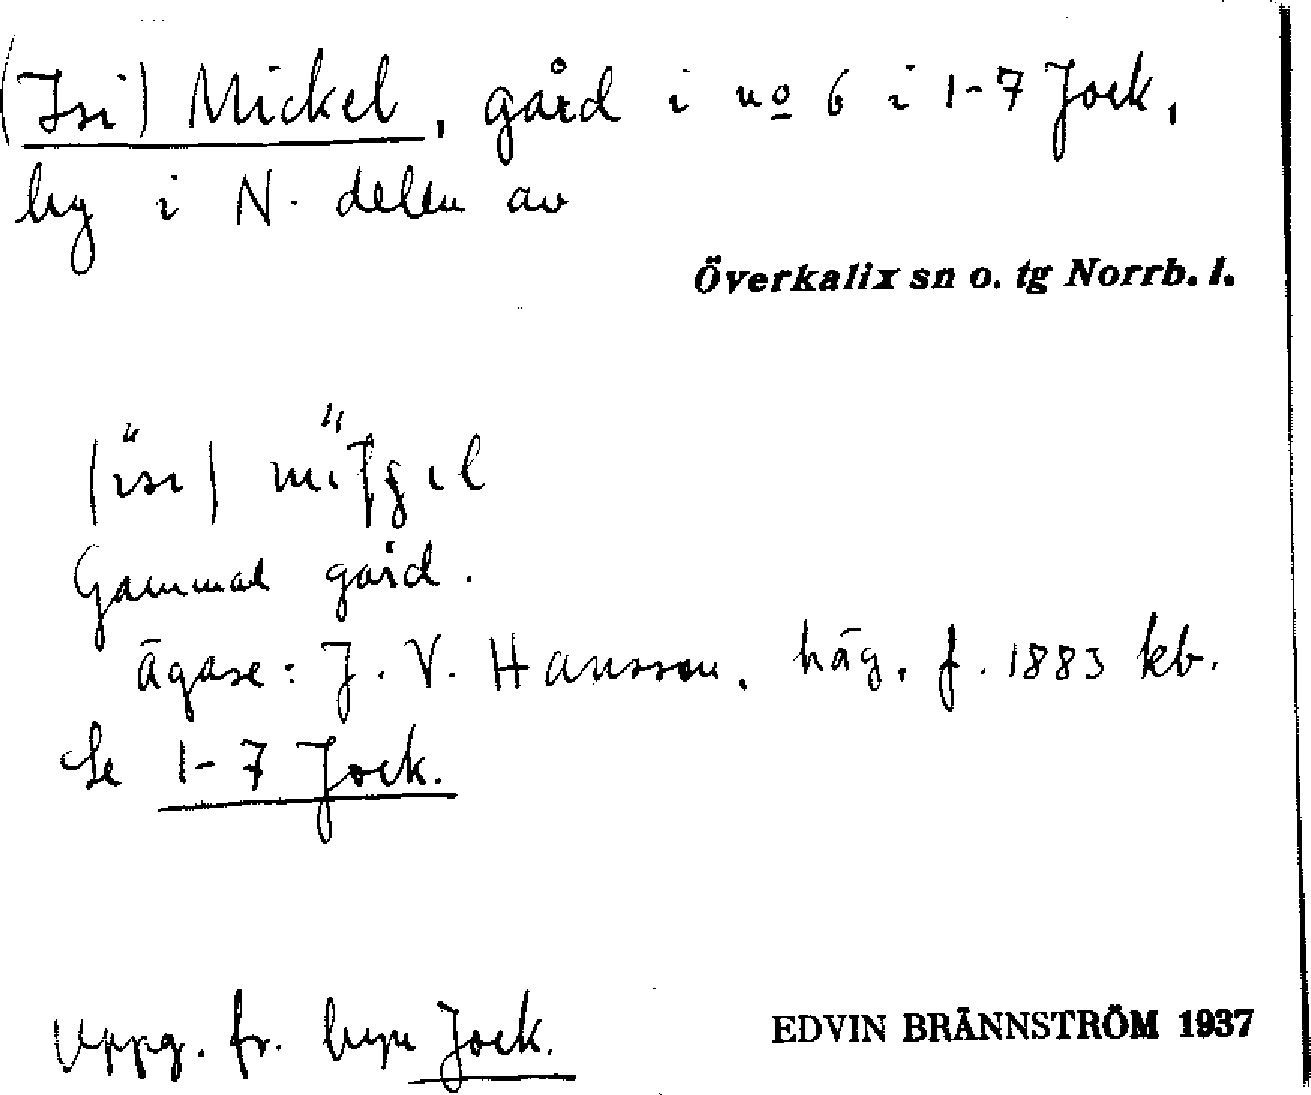 (Isi) Mickel, gård i no 6 i 1-7 Jock,
by i N. delen av
Överkalix sn o. tg Norrb. l.
Gammal gård.
ägare: J. V. Hansson, häg. f. 1883 kb.
Se 1-7 Jock.
Uppg. fr. byn Jock.
EDVIN BRÄNNSTRÖM 1937